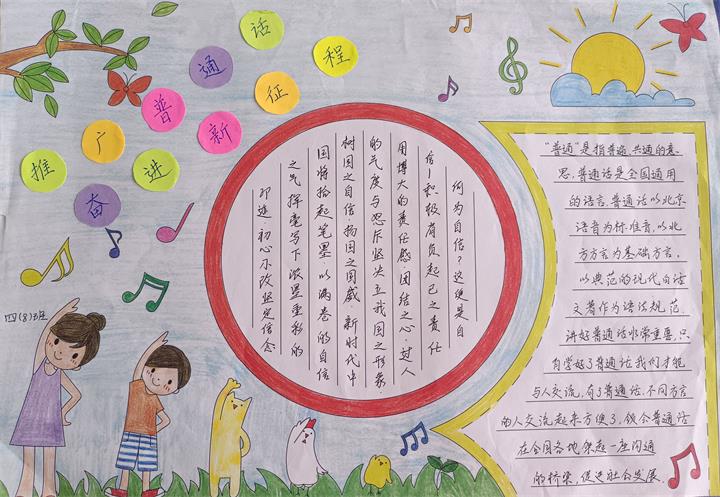 推广普通话
奋进新征程
四(8)班
何为自信?这便是自
信!积极肩负起己之责任
用博大的责任感.团结之心.过人
的气度与忍斥坚决立我国之形象.
树国之自信扬国之国威 新时代中
国将拾起笔墨.以满卷的自信
之气挥毫写下浓墨重彩的
初心不改坚定信念
"普通"是指普遍、共通的意
思.普通话是全国通用
的语言.普通话以北京
语音为标准音.以北
方方言为基础方言,
以典范的现代白话
文著作为语法规范.
讲好普通话非常重要.只
有学好了普通话.我们才能
与人交流,有了普通话.不同方言
的人交流起来方便了,使令普通话
在全国各地.架起一座沟通
的桥梁,促进社会发展.